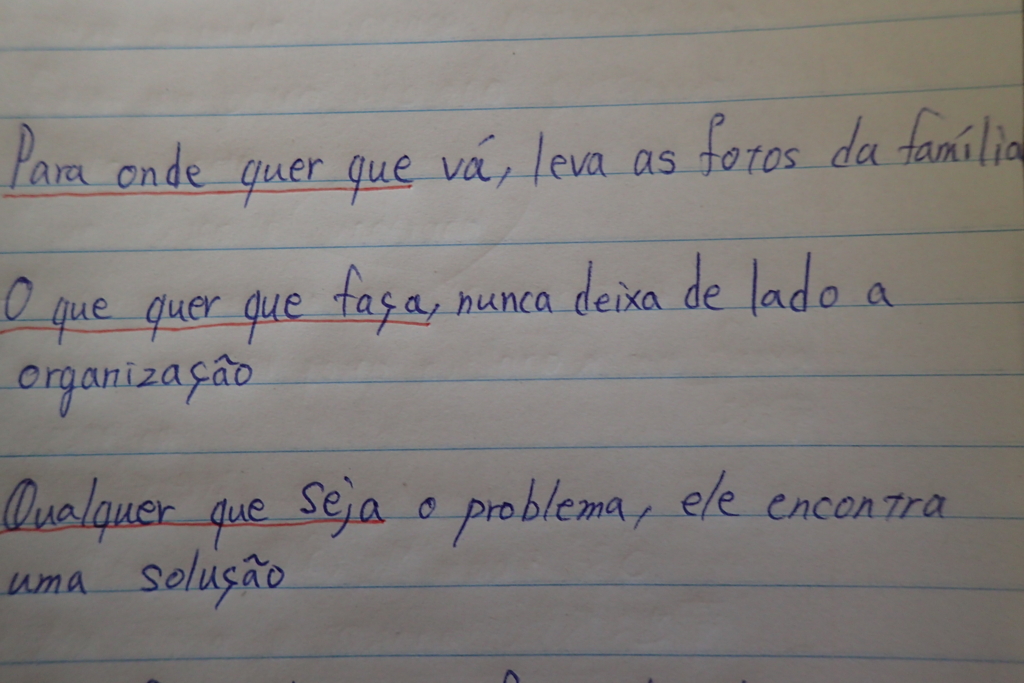 Para onde quer que vá, leva as fotos da família
O que quer que faça, nunca deixa de lado a
organização
Qualquer que seja o problema, ele encontra
uma solução